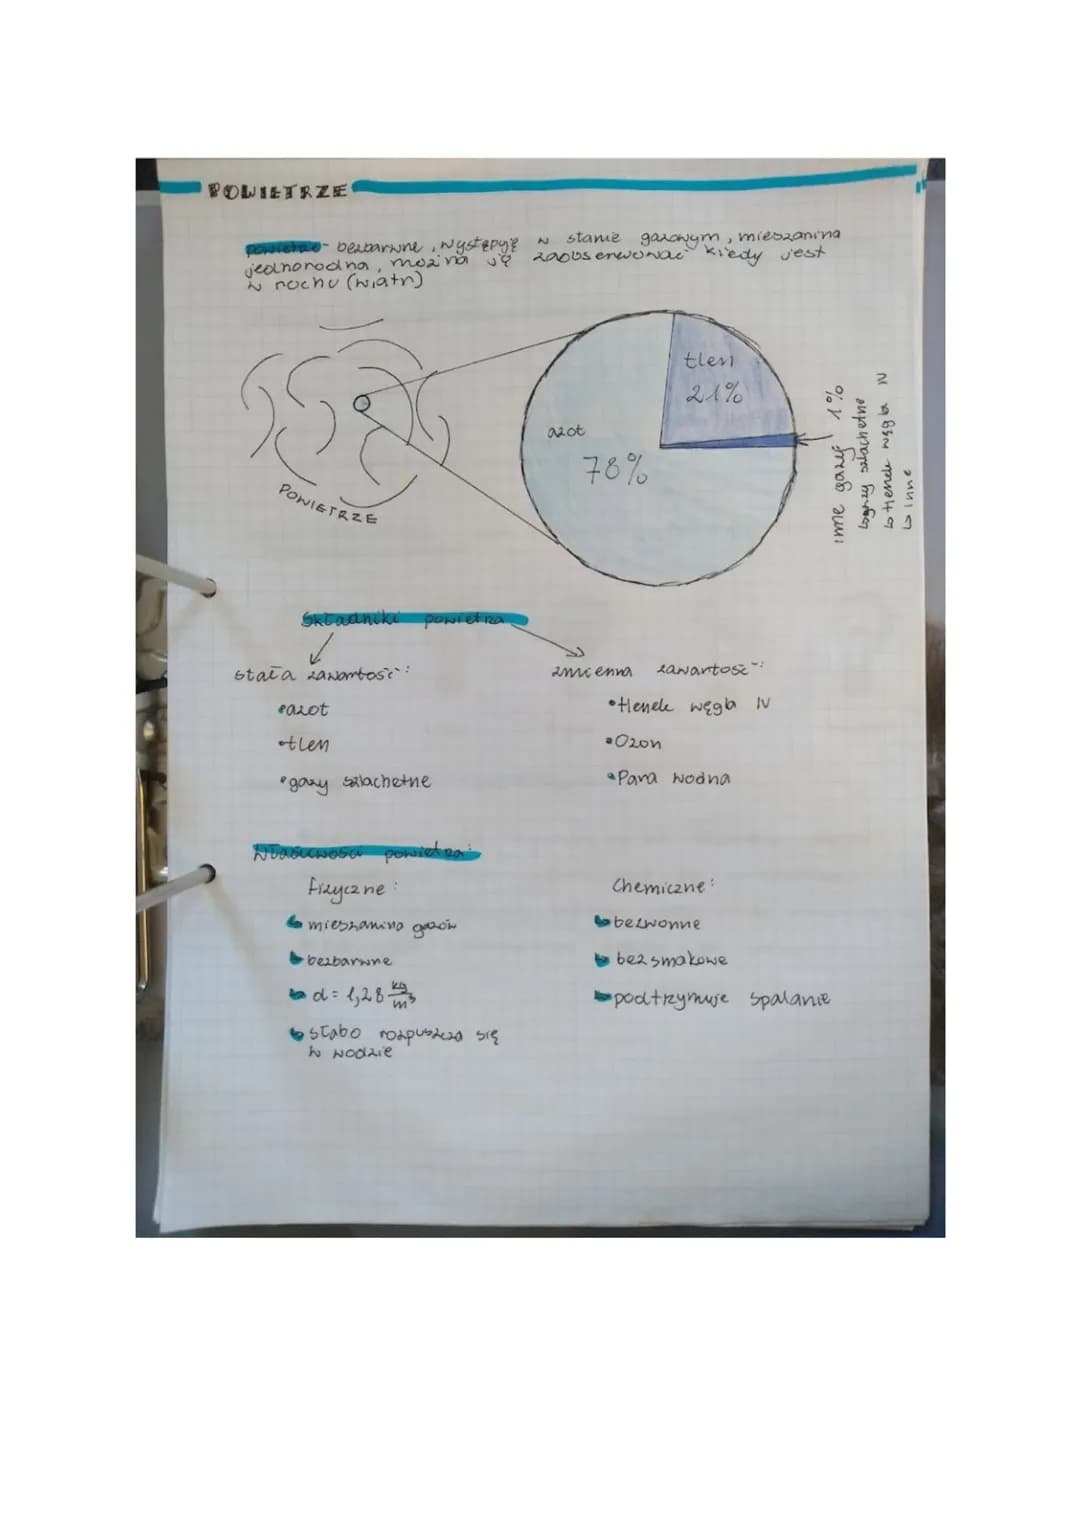 POWIETRZE
powietrze - bezbarwne, występuję w stanie gazowym, mieszanina
jednorodna, można ję zaobserwować kiedy jest
w rochu (wiatr)
POWIETRZE
azot
78%
tlen
21%
inne gazy 1%
↳ gazy szlachetne
↳ tlenek węgla IV
↳ inne
Składniki powietrza
stała zawartość:
• azot
• tlen
• gazy szlachetne
zmienna zawartość:
• tlenek węgla IV
• Ozon
• Para wodna
Właściwości powietrza:
fizyczne:
↳ mieszanina gazów
↳ bezbarwne
↳ d = 1,28 kg/m³
↳ słabo rozpuszcza się
w wodzie
Chemiczne:
↳ bezwonne
↳ bezsmakowe
↳ podtrzymuje spalanie